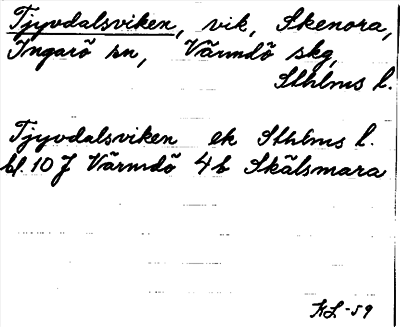 Tjyvdalsviken, vik, Skenora,
Ingarö sn, Värmdö skg,
Sthlms l.
Tjyvdalsviken ek Sthlms l.
bl. 10 J Värmdö 4b Skälsmara
KL-59